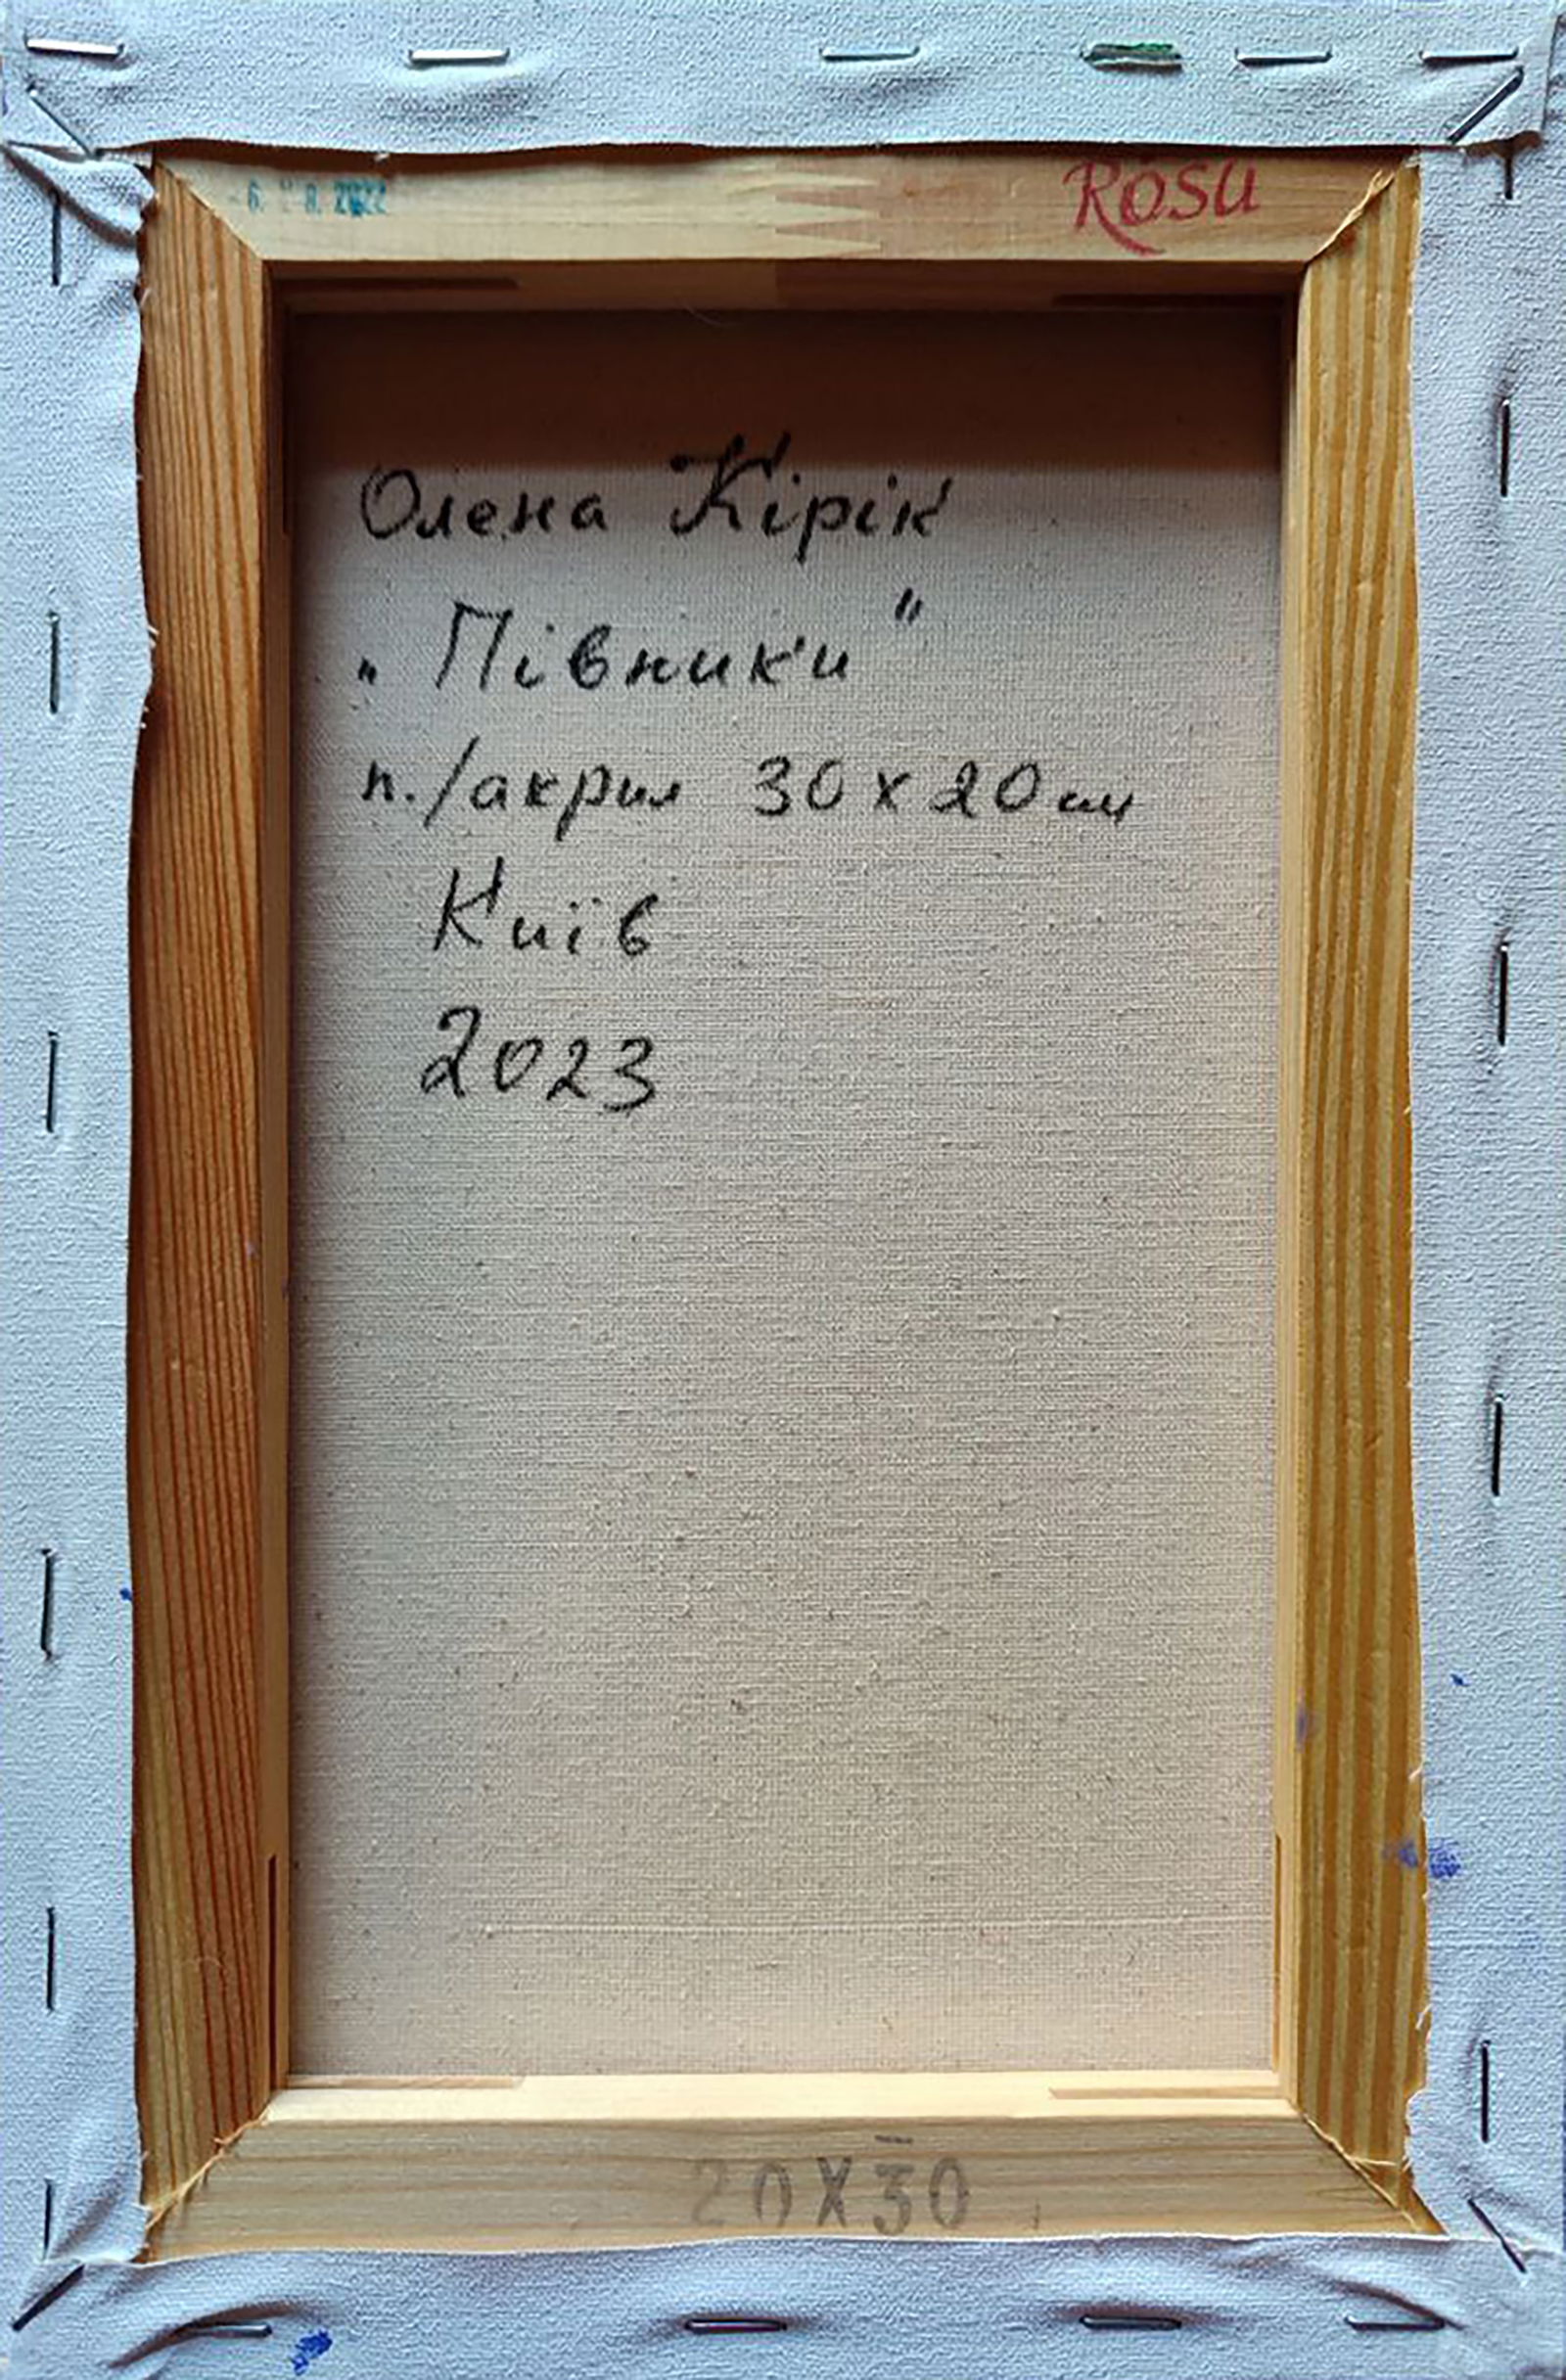 Rosa
Олена Кірік
„Півники"
п./акрил 30 х 20 см
Київ
2023
20X30